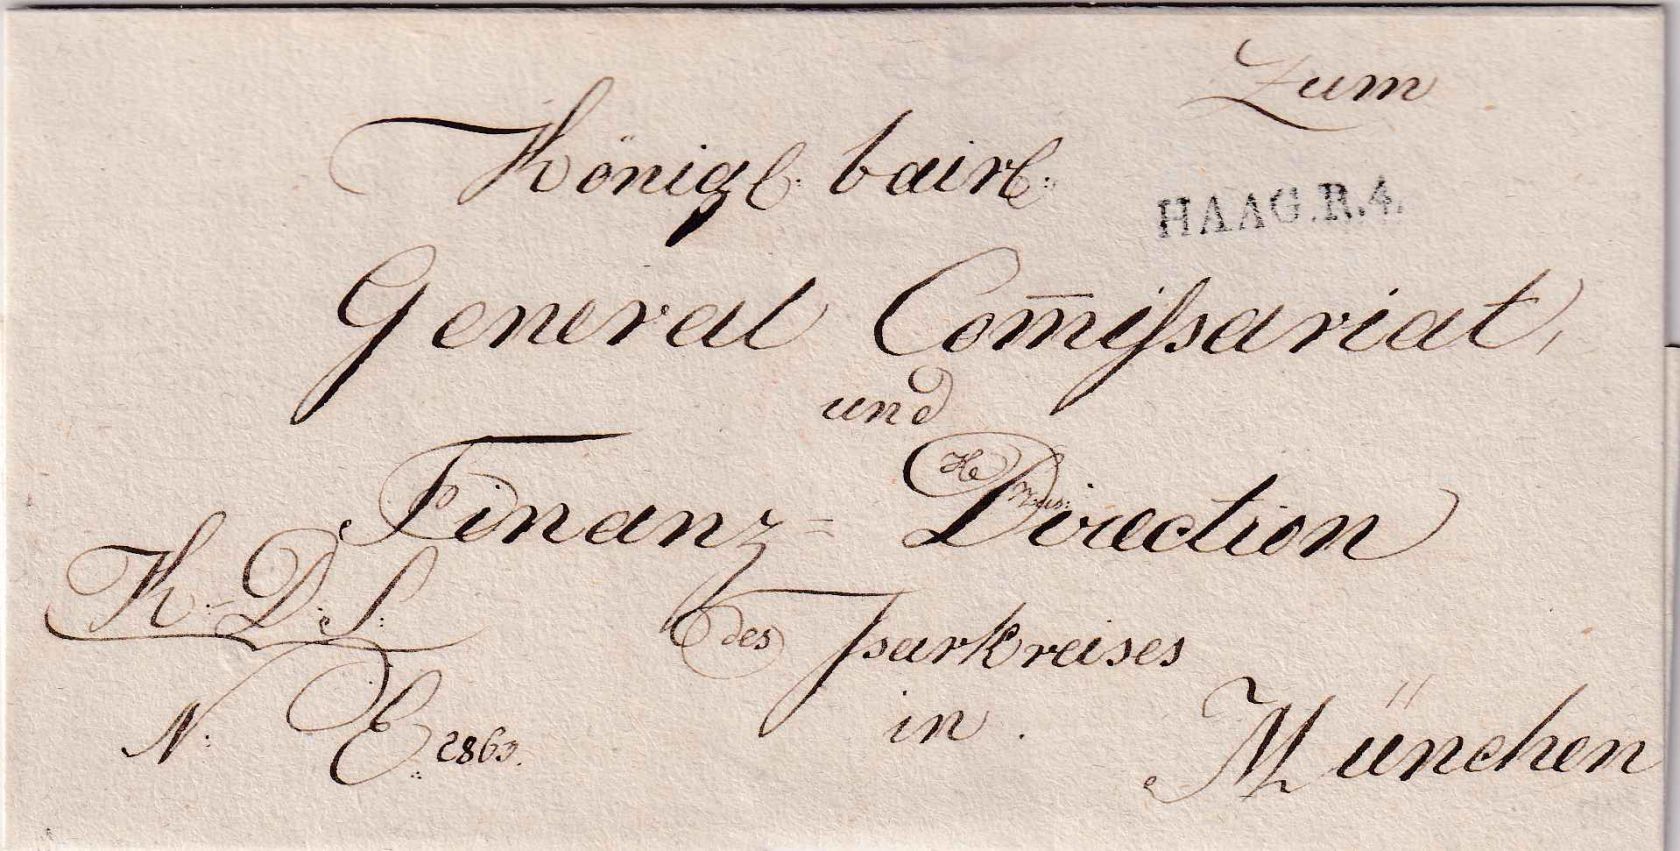 Zum
Königl: bairl:
HAAG.R.4.
General Com̅ißariat,
und
Finanz = Direction
K:D:S:
des Isarkreises
in
N: E: 2863.
München